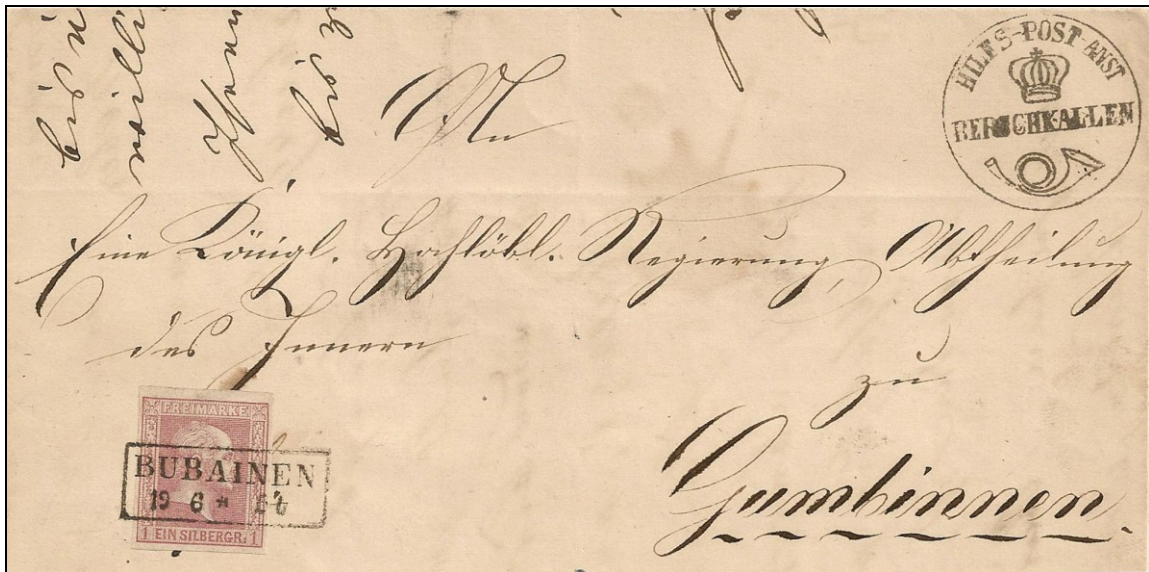 HILFS-POST-ANST
BERSCHKALLEN
An
Eine Königl. Hochlöbl. Regierung, Abtheilung
des Innern
zu
Gumbinnen.
FREIMARKE
BUBAINEN
19 6 *
1 EIN SILBERGR. 1
bis